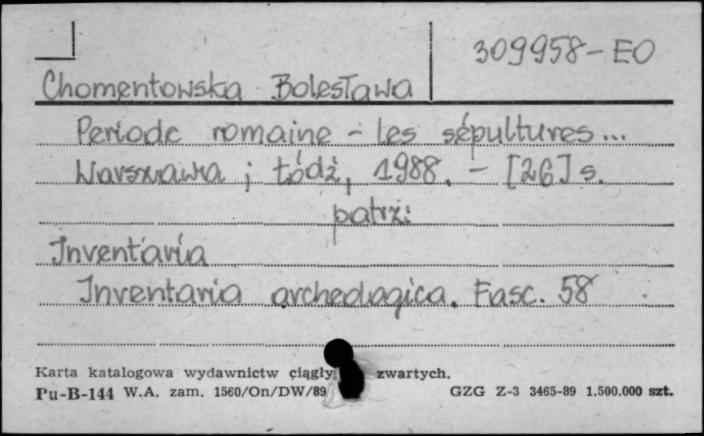 309958-EO
Chomentowska Bolesława
Periode romaine - les sépultures...
Warszawa ; Łódź, 1988. - [26] s.
patrz:
Inventaria
Inventaria archeologica. Fasc. 58
Karta katalogowa wydawnictw ciągły zwartych.
Pu-B-144 W.A. zam. 1560/On/DW/89 GZG Z-3 3465-89 1.500.000 szt.